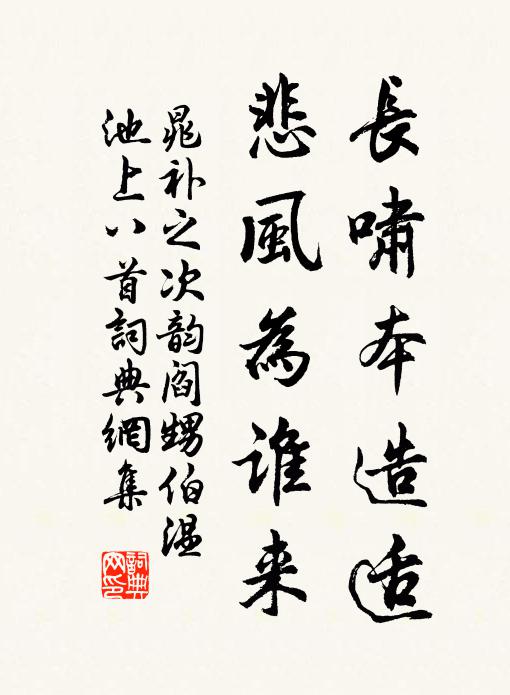 長嘯本造适
悲風為誰来
晁补之次韵阎甥伯温
池上八首詞典網集
詞典
网印